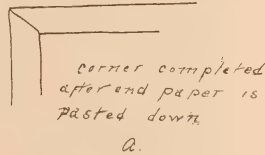 corner completed
after end paper is
pasted down
a.